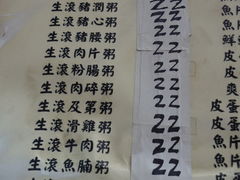 生滾豬潤粥 22
生滾豬心粥 22
生滾豬腰粥 22
生滾肉片粥 22
生滾粉腸粥 22
生滾肉碎粥 22
生滾及第粥 22
生滾滑雞粥 22
生滾牛肉粥 22
生滾魚腩粥 22
魚片
魚
鮮
皮
魚
皮
爽
皮蛋
皮蛋
魚蛋